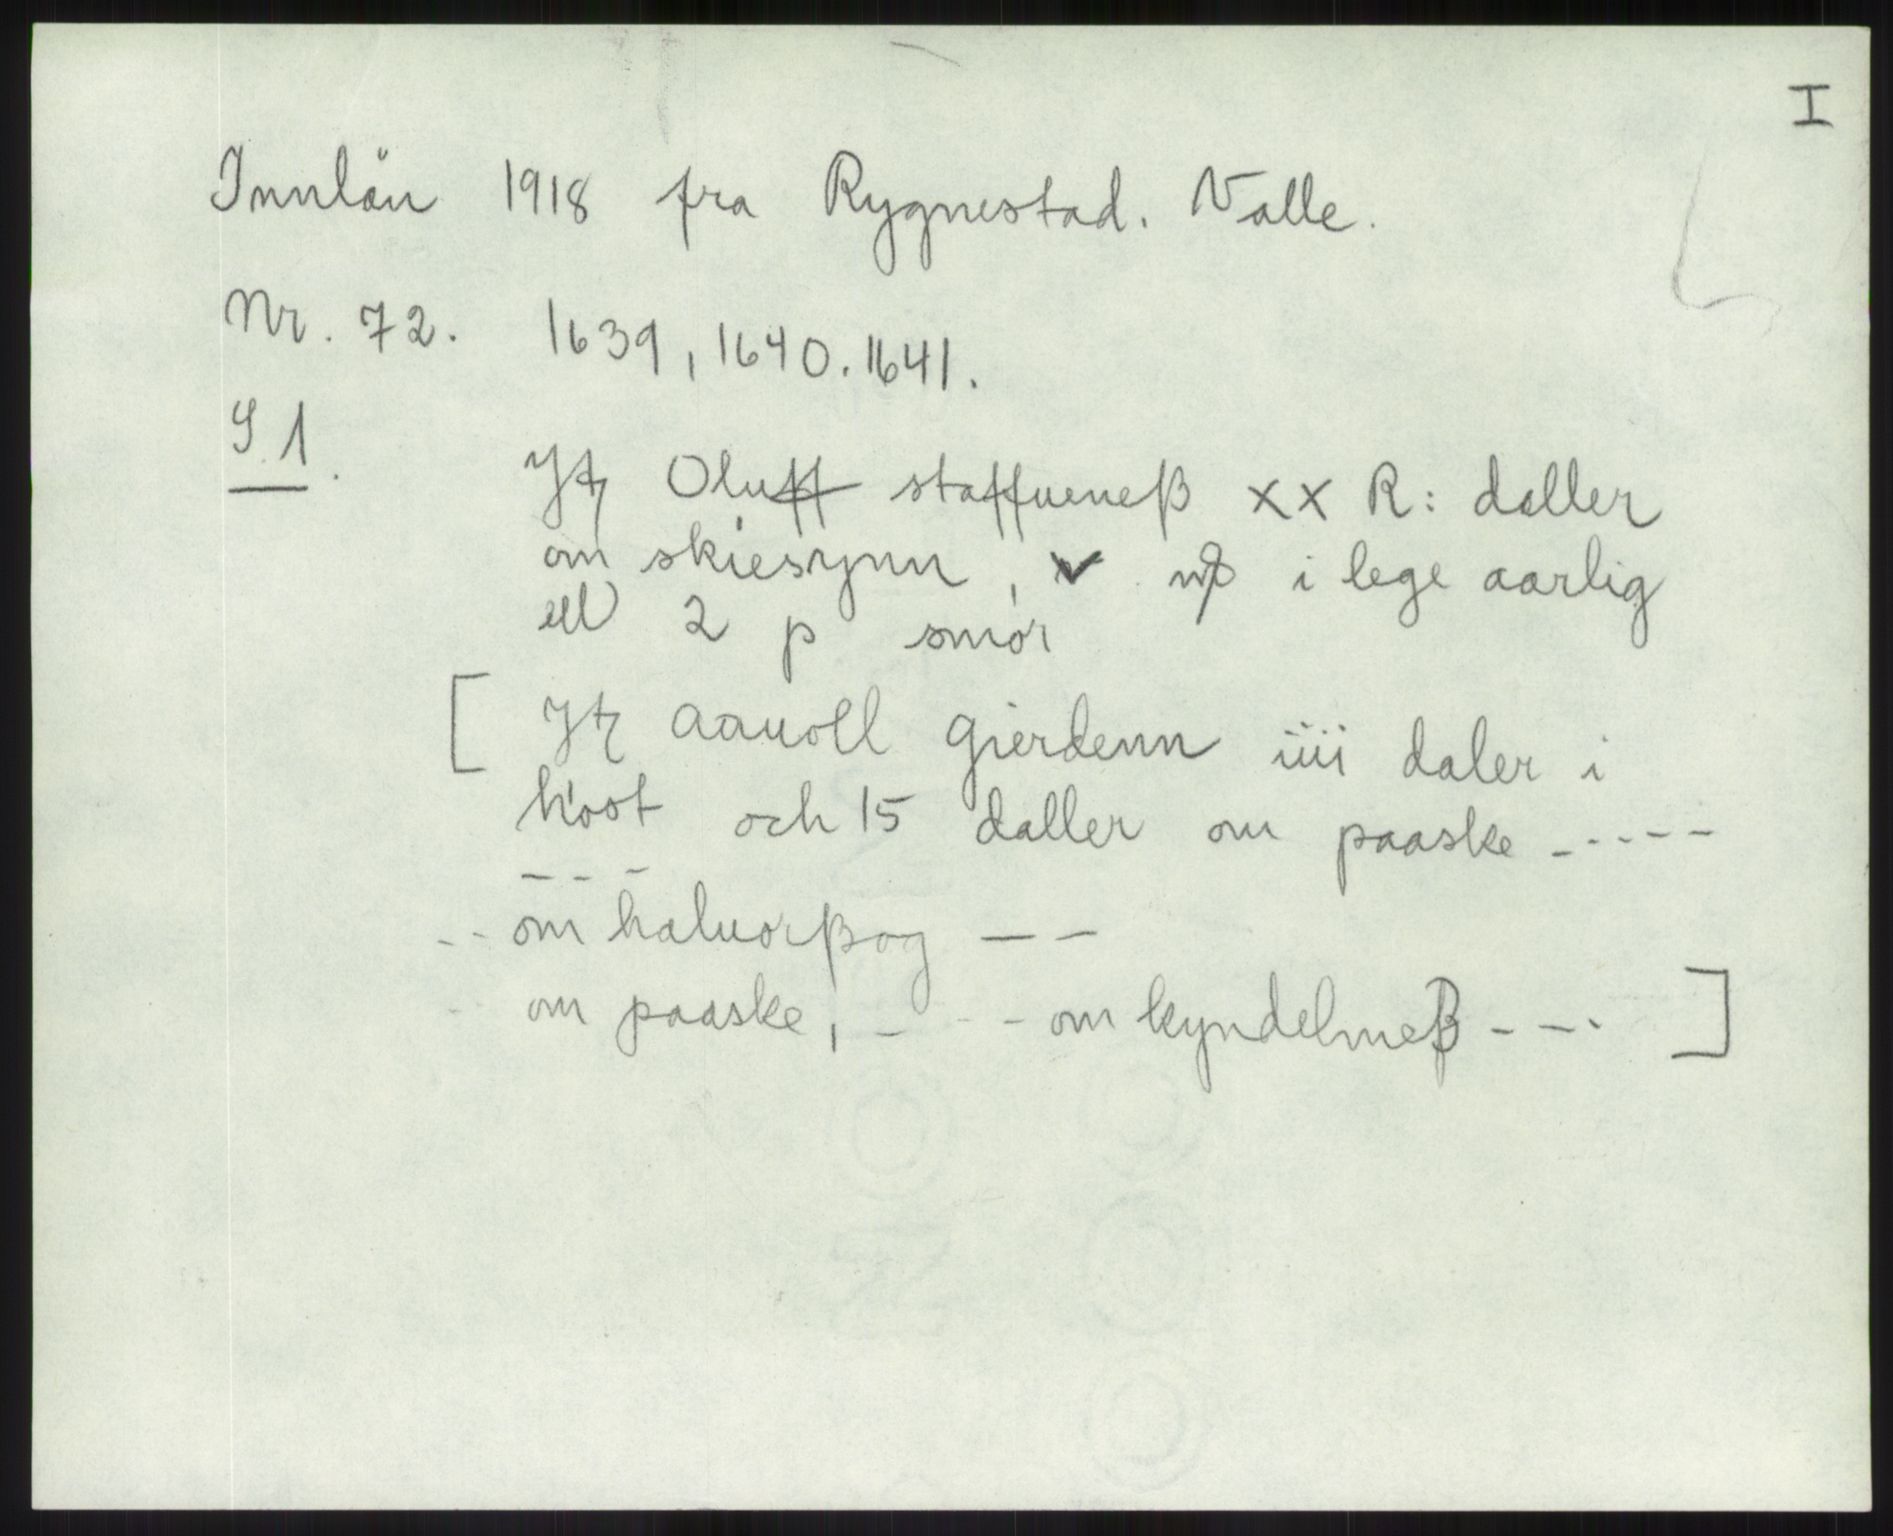 I
Innlån 1918 fra Rygnestad. Valle.
Nr. 72. 1639, 1640. 1641.
S 1.
Jtz Oluff staffueneß xx R: daller
om skiesynn, v i lege aarlig
ell 2 p smör
[ Jtz aauoll gierdenn iiii daler i
höst och 15 daller om paaske -----
---
-- om haluorßog --
- om paaske, - -- om kyndelmeß --- ]